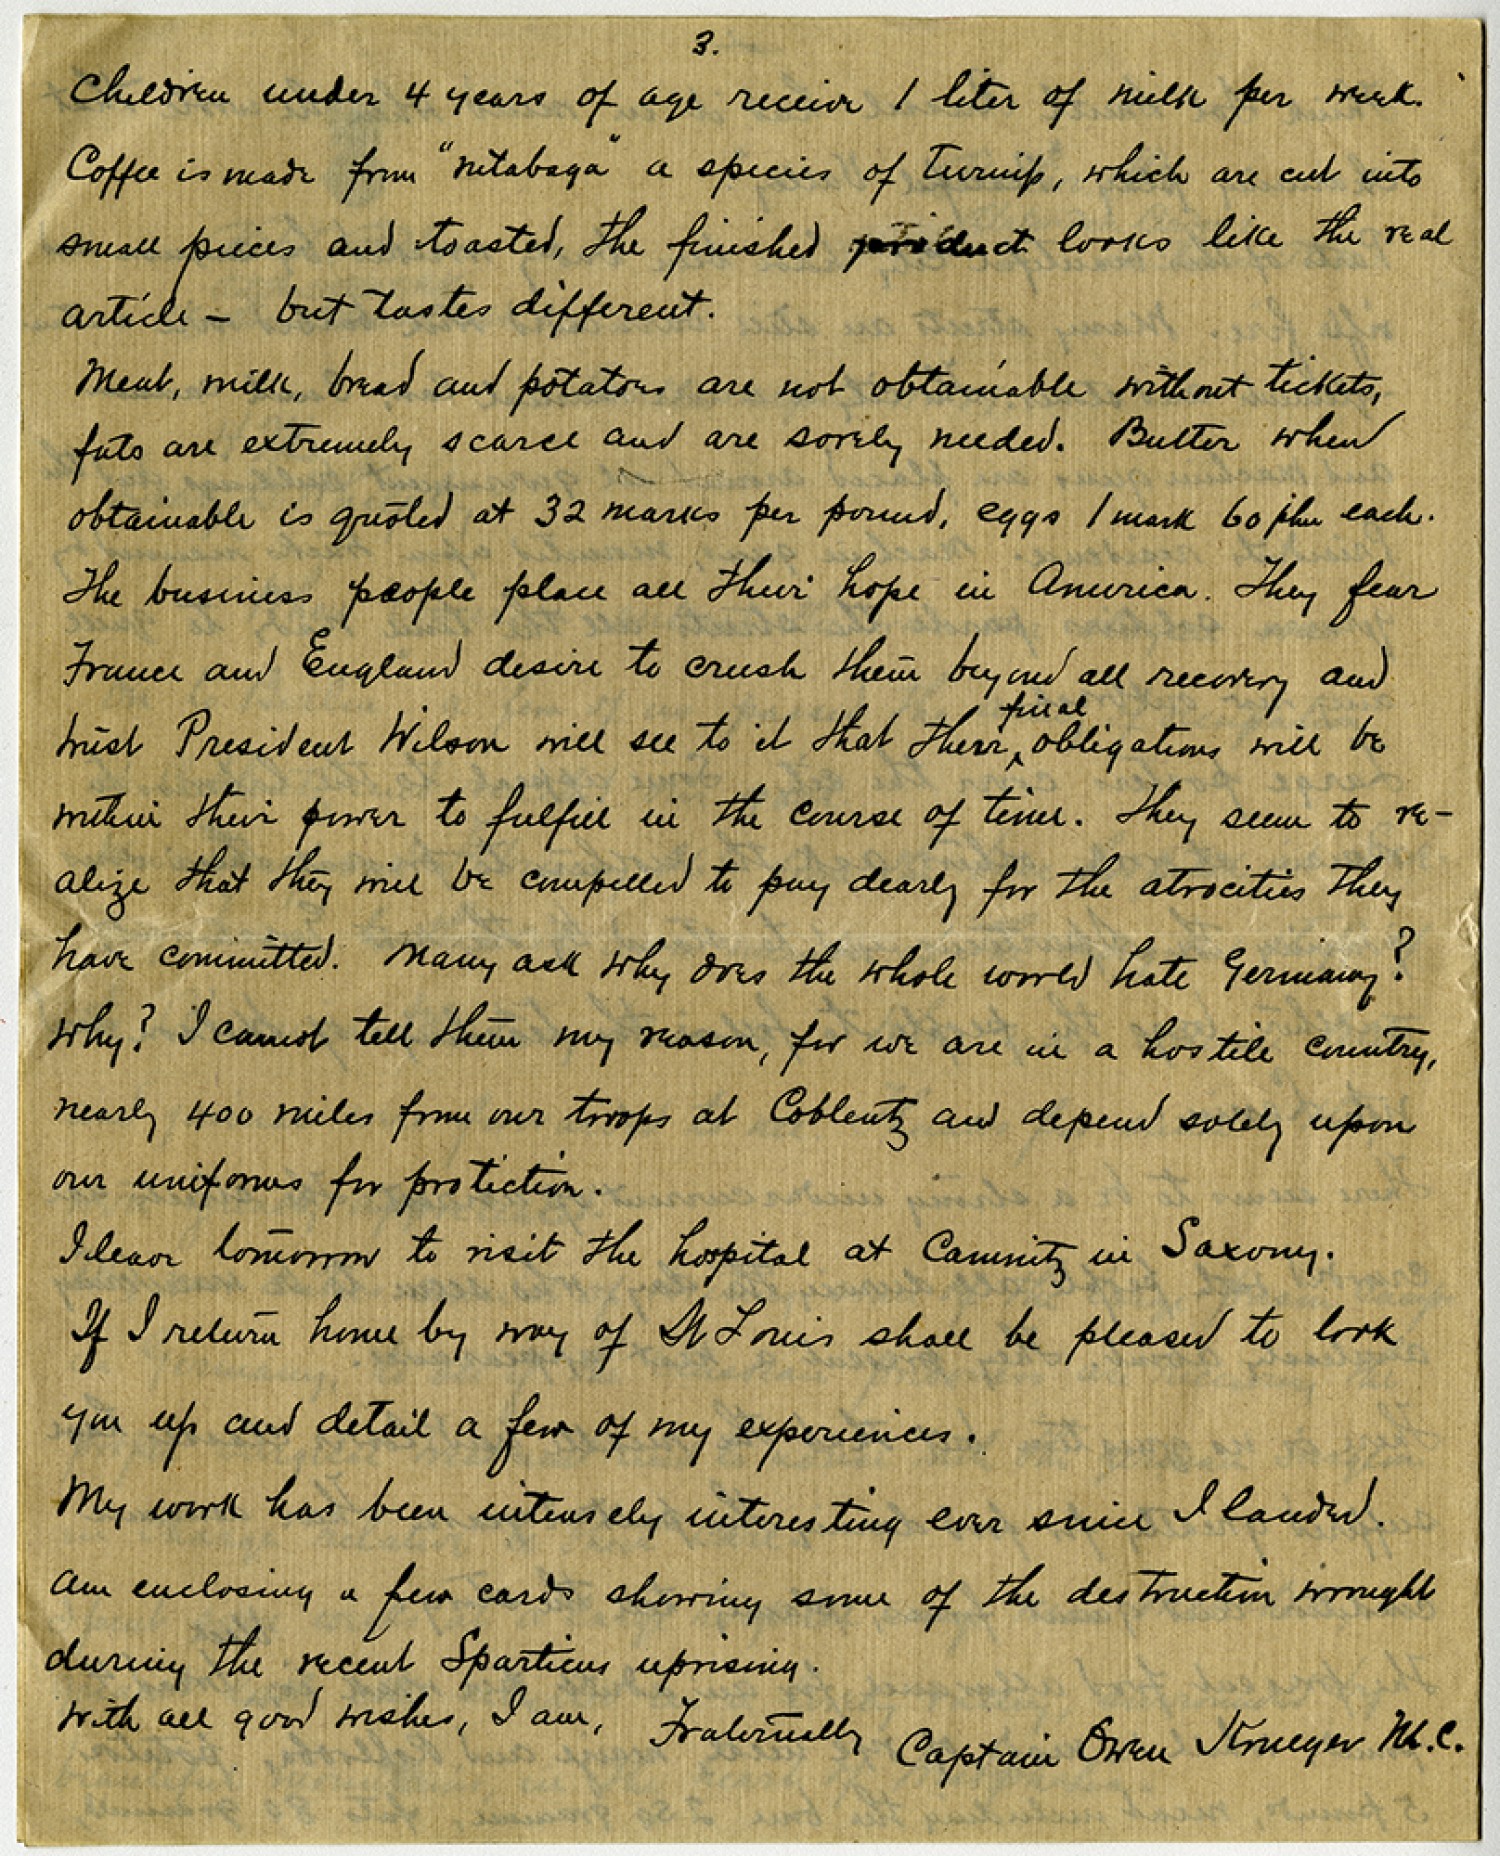 3.
Children under 4 years of age receive 1 liter of milk per week.
Coffee is made from "rutabaga" a species of turnip, which are cut into
small pieces and toasted, the finished product looks like the real
article – but tastes different.
Meat, milk, bread and potatoes are not obtainable without tickets,
fats are extremely scarce and are sorely needed. Butter when
obtainable is quoted at 32 marks per pound, eggs 1 mark 60 each.
The business people place all their hope in America. They fear
France and England desire to crush them beyond all recovery and
trust President Wilson will see to it that their final obligations will be
within their power to fulfill in the course of time. They seem to re-
alize that they will be compelled to pay dearly for the atrocities they
have committed. Many ask why does the whole world hate Germany?
Why? I cannot tell them my reason, for we are in a hostile country,
nearly 400 miles from our troops at Coblentz and depend solely upon
our uniforms for protiction.
I leave tomorrow to visit the hospital at Camnitz in Saxony.
If I return home by way of St Louis shall be pleased to look
you up and detail a few of my experiences.
My work has been intensely interesting ever since I landed.
Am enclosing a few cards showing some of the destruction wrought
during the recent Sparticus uprising.
With all good wishes, I am, Fraternally Captain Owen Krueger M.C.